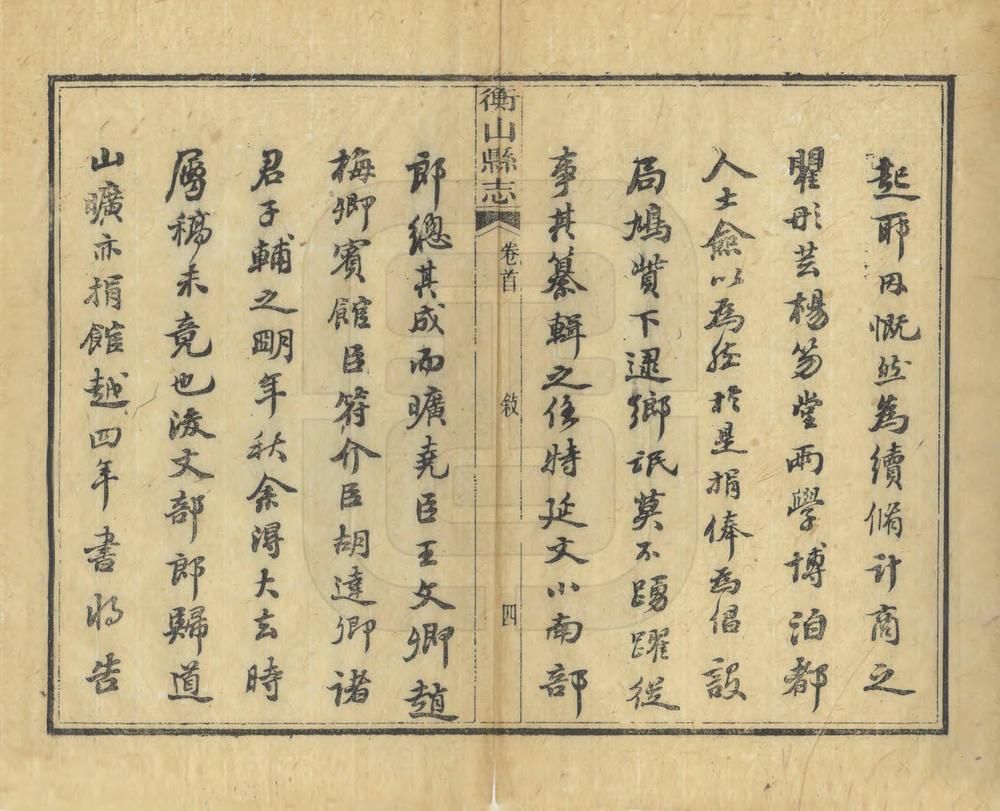 起耶因慨然爲續脩計商之
瞿彤芸楊笏堂兩學博洎都
人士僉以爲然於是捐俸爲倡設
局鳩貲下逮鄉氓莫不踴躍從
事其纂輯之任特延文小南部
衡山縣志
卷首
敘
四
郎總其成而曠堯臣王文卿趙
梅卿賓館臣符介臣胡達卿諸
君子輔之明年秋余得大去時
屬稿未竟也后文部郎歸道
山曠亦捐館越四年書將告